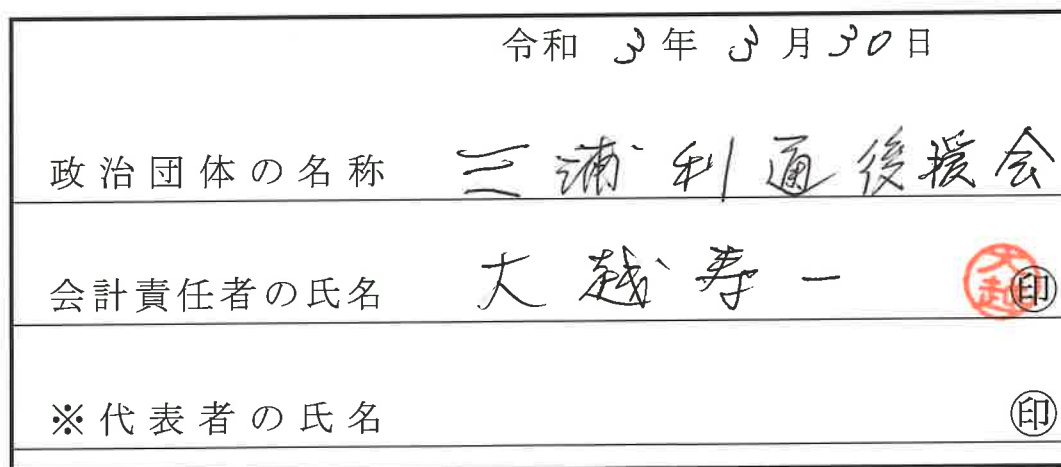 令和 3年 3月30日
政治団体の名称 三浦利通後援会
会計責任者の氏名 大越寿一 大越 ㊞
※代表者の氏名 ㊞